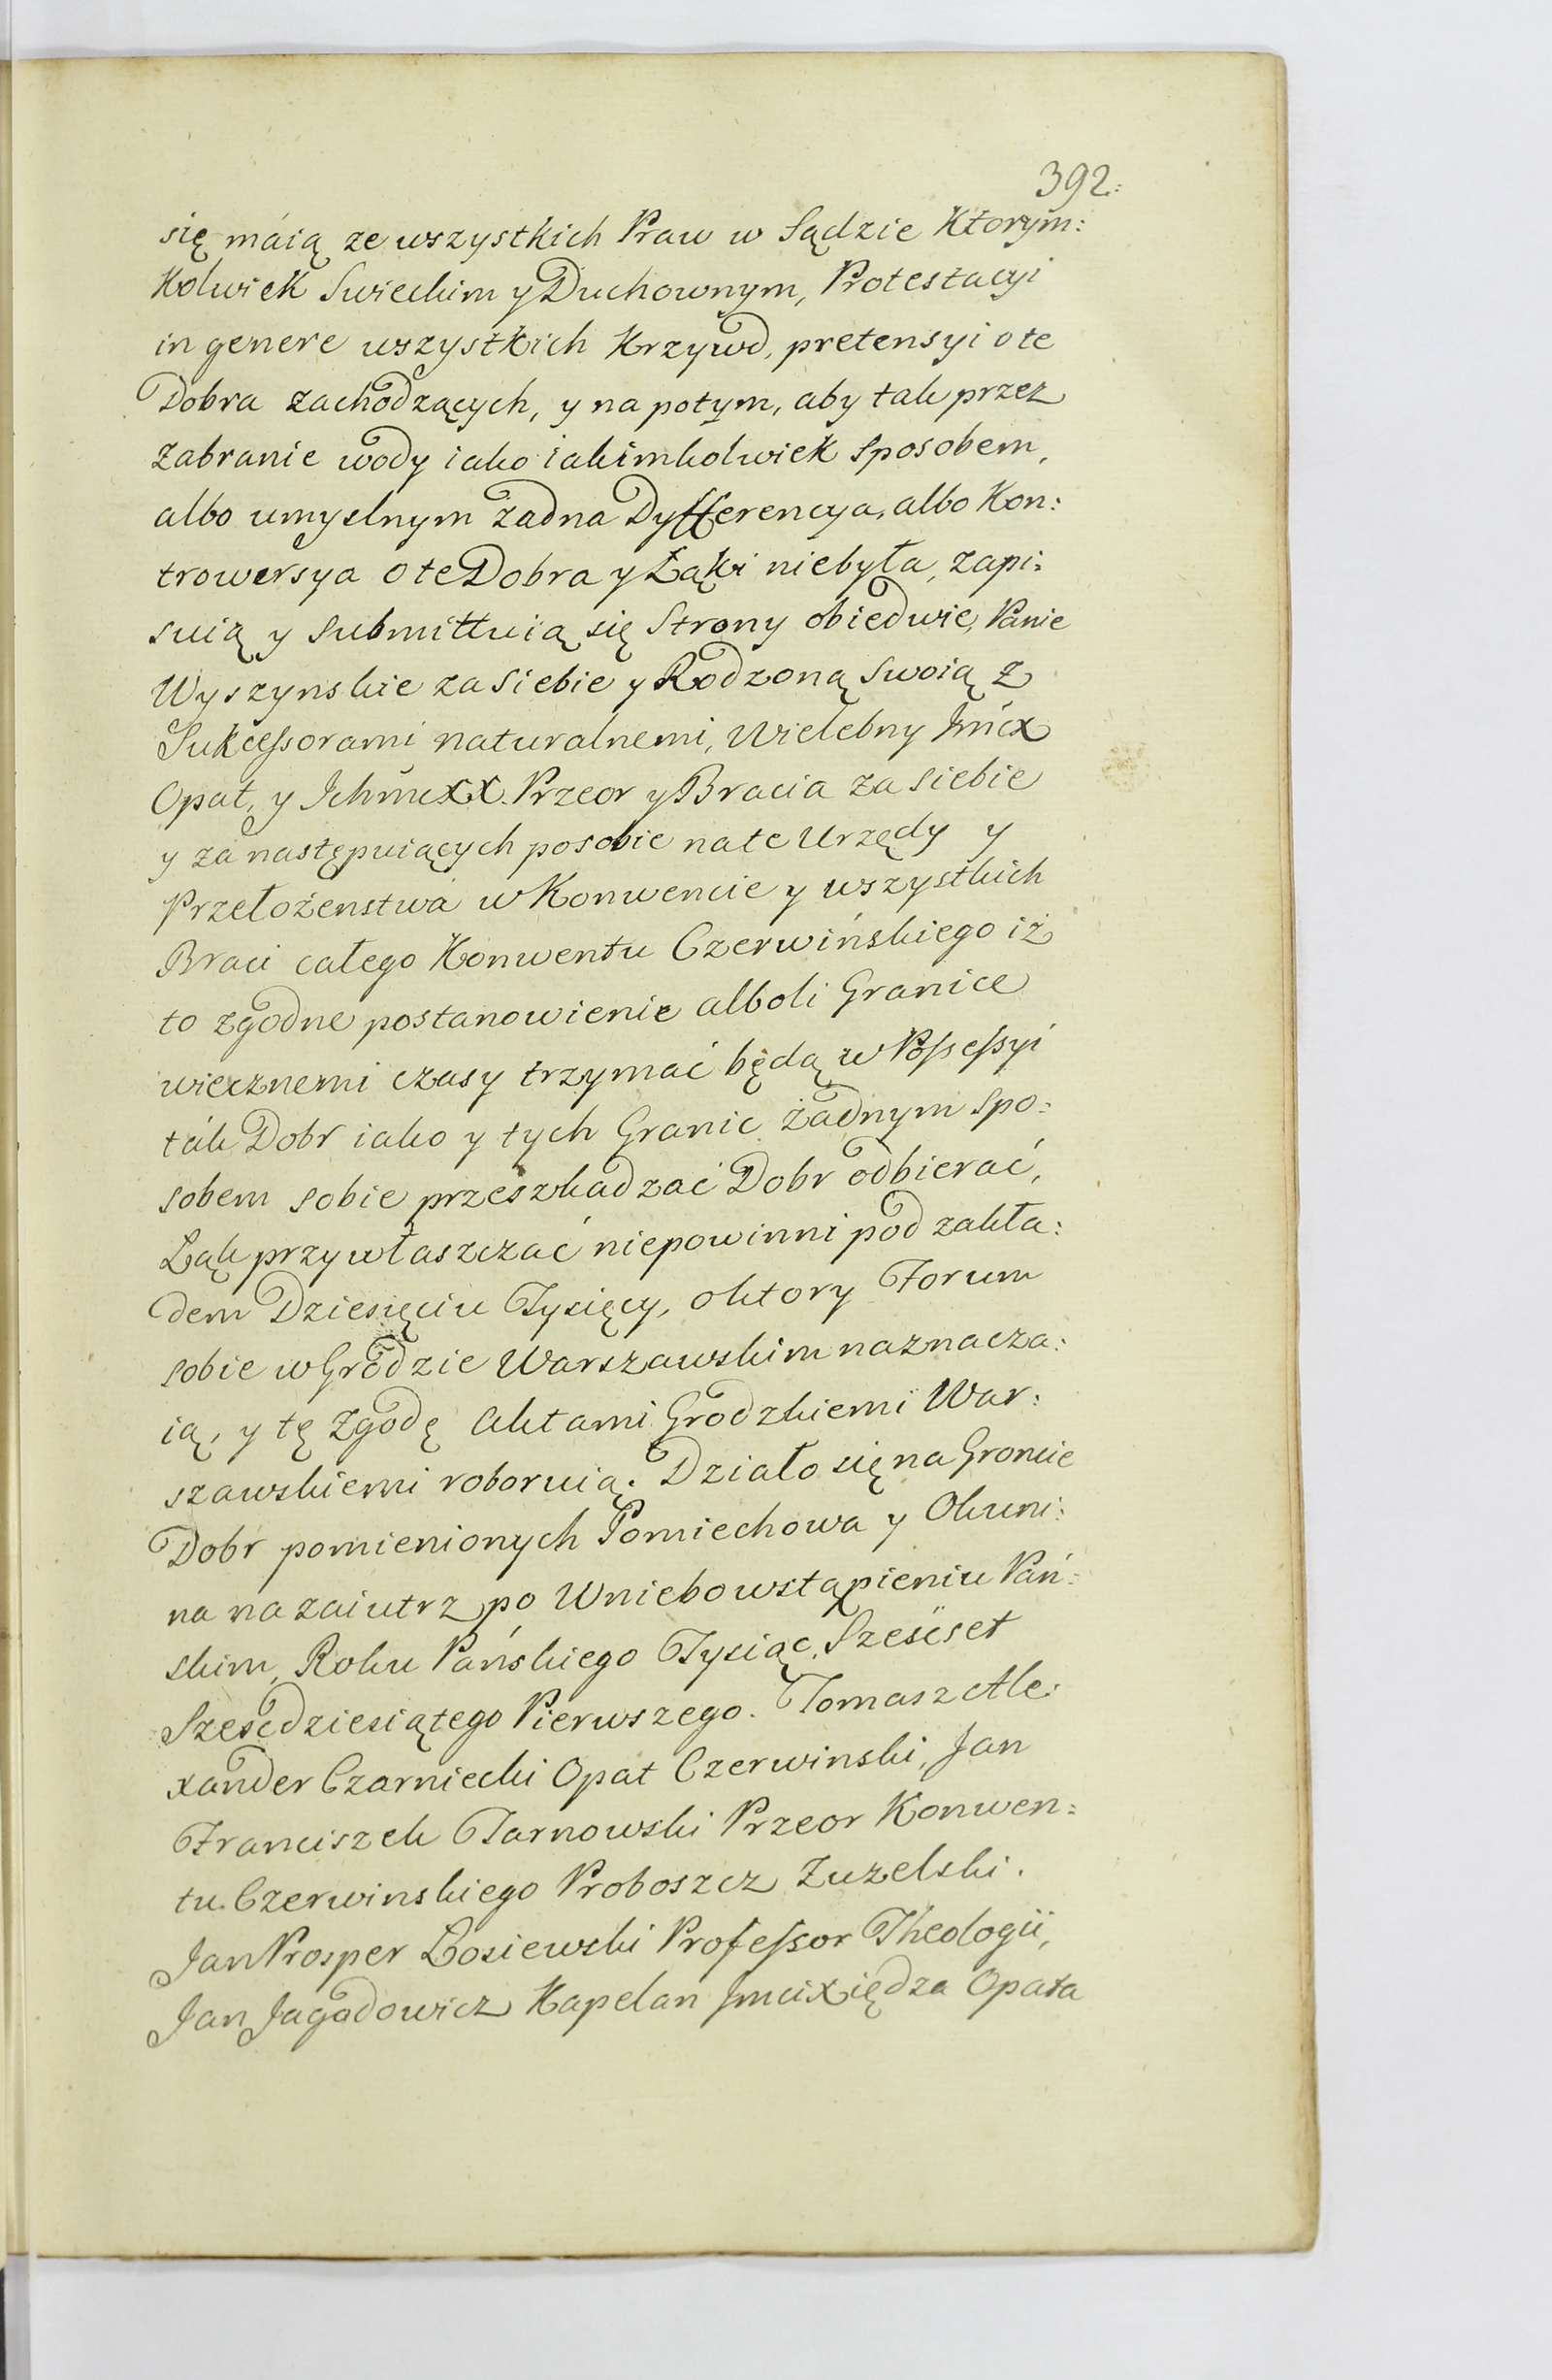 392.
się máią ze wszystkich Praw w Sądzie Ktorym:
Kolwiek Swieckim y Duchownym, Protestacyi
in genere wszystkich Krzywd, pretensyi o te
Dobra zachodzących, y na potym, aby tak przez
zabranie wody iako iakimkolwiek sposobem,
albo umyslnym żadna Dyfferencya, albo Kon:
trowersya o te Dobra y Łąki niebyła, zapi:
suią y submittuią się Strony obiedwie, Panie
Wyszynskie za siebie y Rodzoną swoią z
Sukcessorami naturalnemi, Wielebny Jmćx
Opat, y Ichmcxx. Przeor y Bracia za siebie
y za następuiących posobie na te Urzędy y
Przełożenstwa w Konwencie y wszystkich
Braci całego Konwentu Czerwińskiego iż
to zgodne postanowienie alboli Granice
wiecznemi czasy trzymać będą w Possessyi
ták Dobr iako y tych Granic żadnym spo:
sobem sobie przeszkadzać Dobr odbierać,
Łąk przywłaszczać niepowinni pod zakła:
dem Dziesięciu Tysięcy, o ktory Forum
sobie w Grodzie Warszawskim naznacza:
ią, y tę Zgodę Aktami Grodzkiemi War:
szawskiemi roboruią. Działo się na Groncie
Dobr pomienionych Pomiechowa y Okuni:
na nazaiutrz po Wniebowstąpieniu Pań:
skim, Roku Pańskiego Tysiąc, Sześcset
Sześcdziesiątego Pierwszego. Tomasz Ale:
xander Czarniecki Opat Czerwinski, Jan
Franciszek Tarnowski Przeor Konwen:
tu Czerwinskiego Proboszcz Zuzelski.
Jan Prosper Łosiewski Professor Theologii,
Jan Jagodowicz Kapelan Jmcixiędza Opata